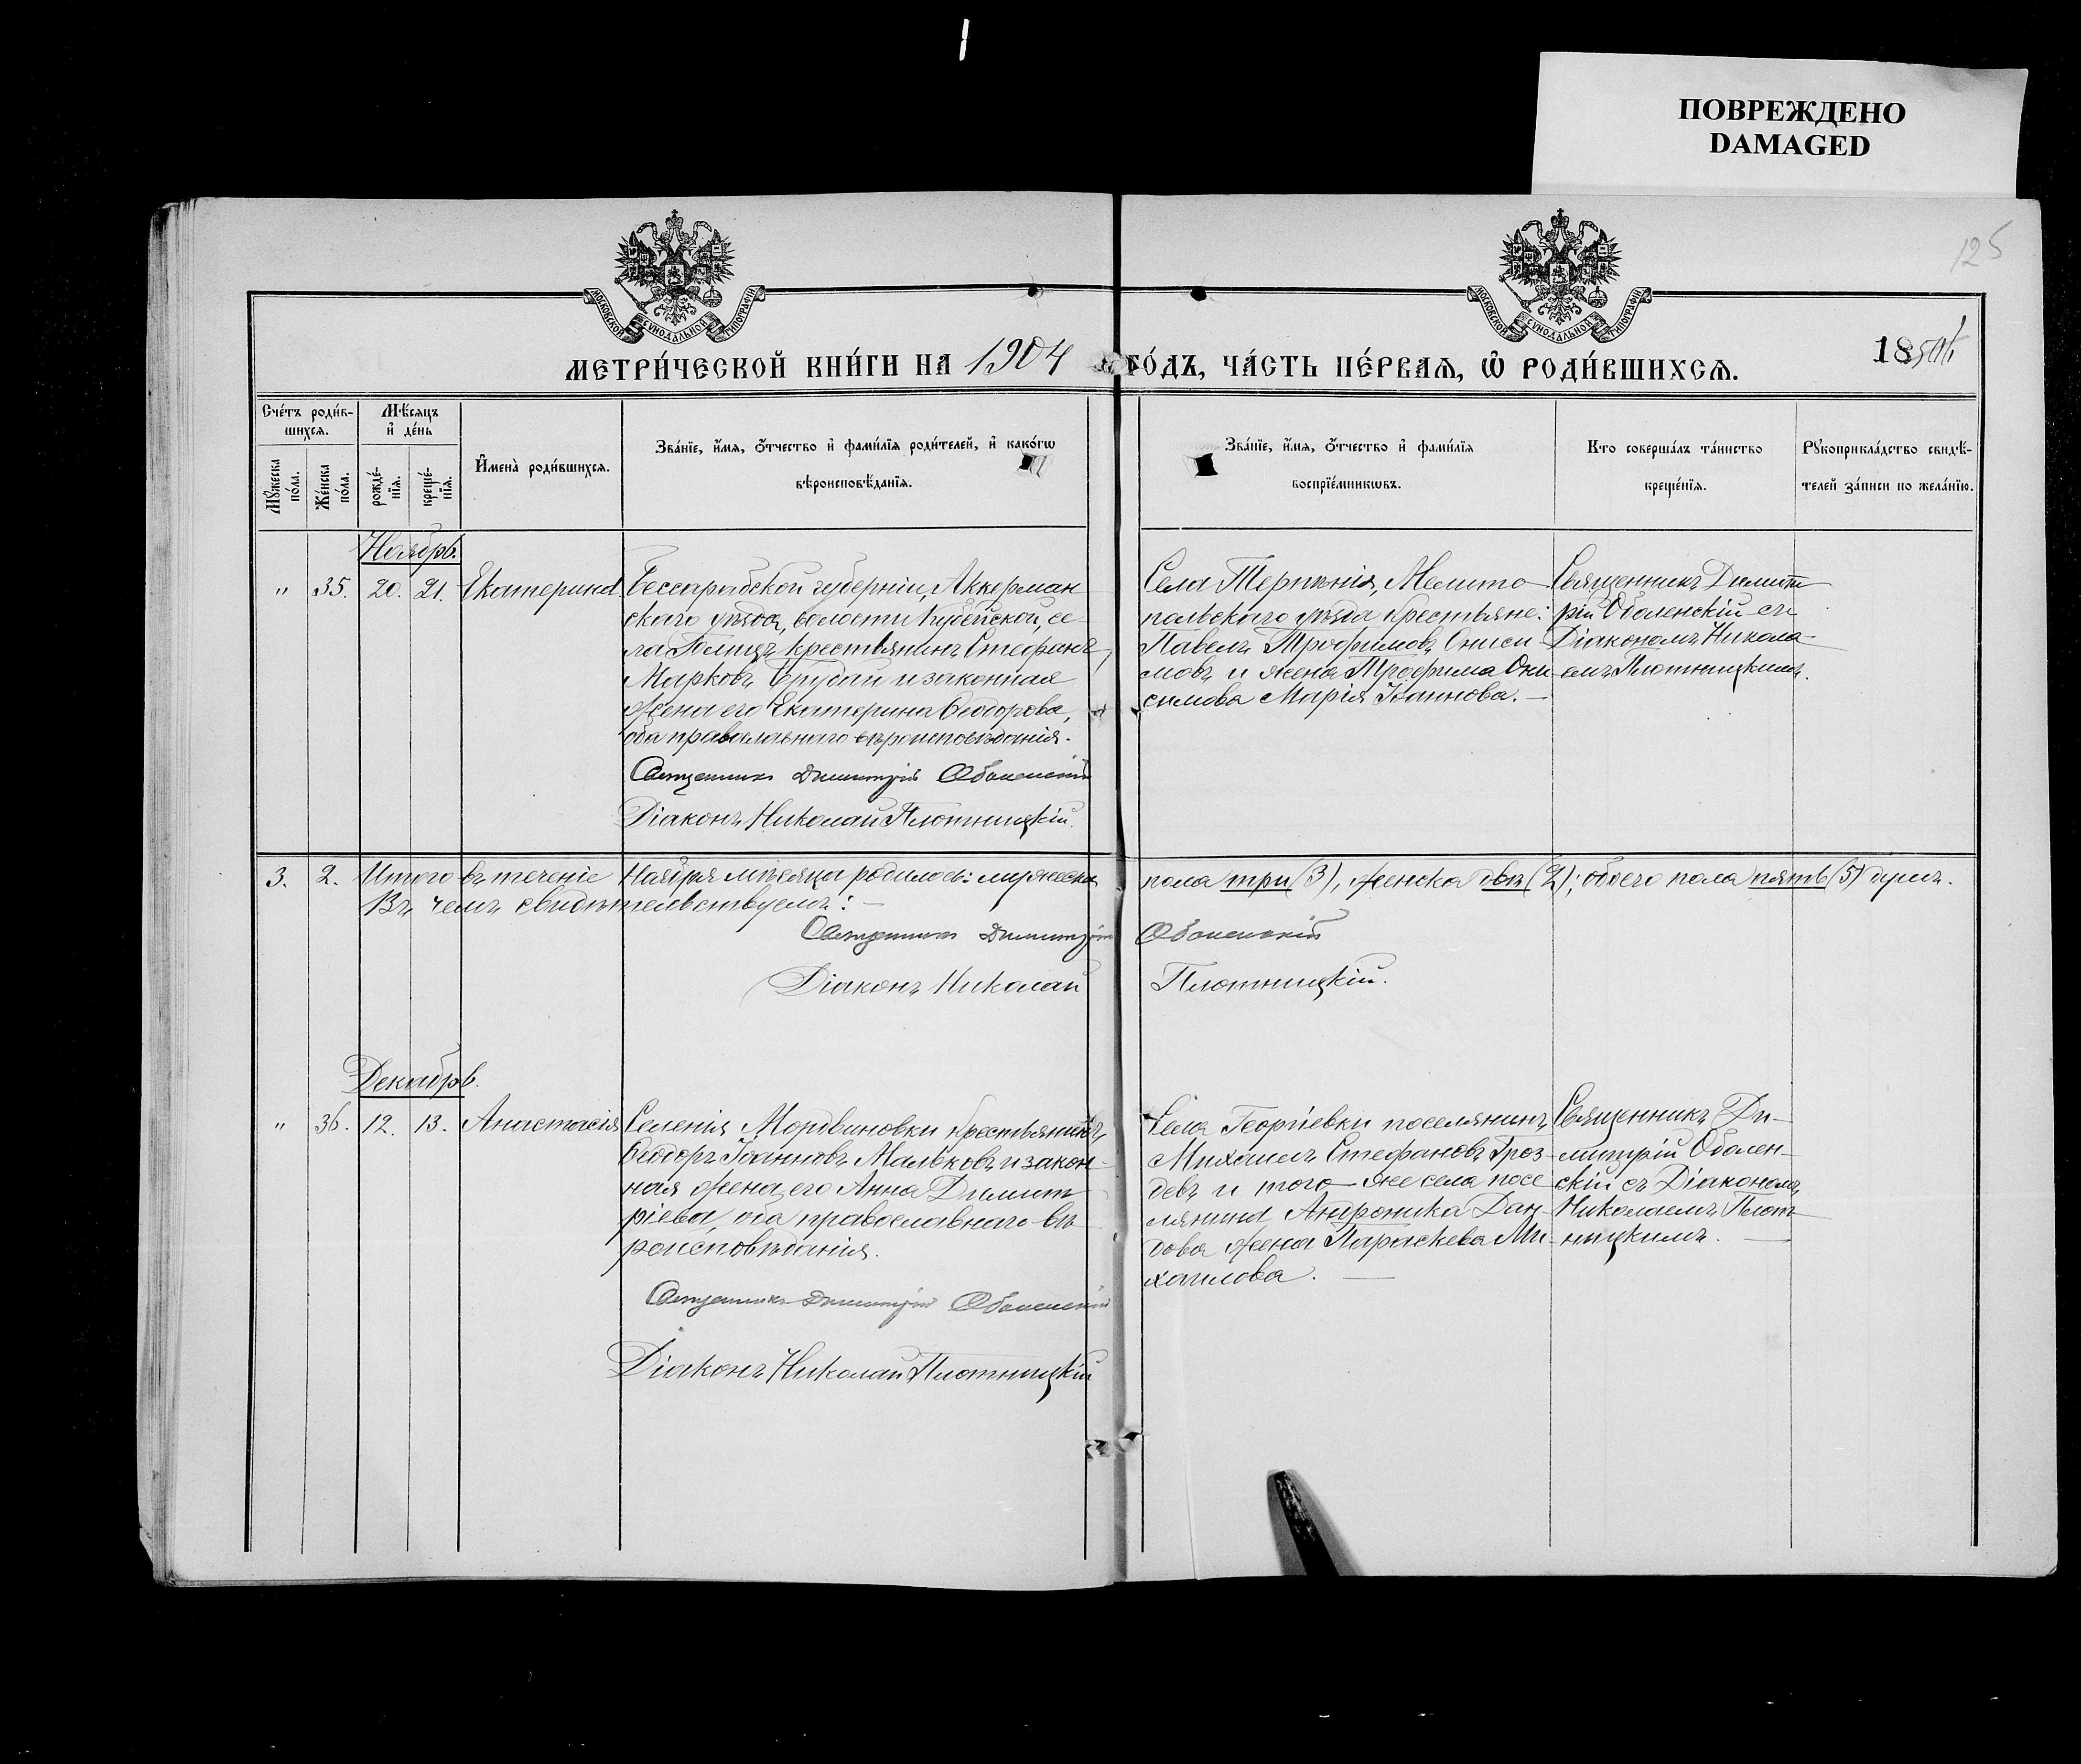 ПОВРЕЖДЕНО
DAMAGED
125
МОСКОВСКОЙ СѴНОДАЛЬНОЙ ТИПОГРАФІИ
МОСКОВСКОЙ СѴНОДАЛЬНОЙ ТИПОГРАФІИ
МЕТРИ́ЧЕСКОЙ КНИ́ГИ НА 1904 ГО́ДЪ, ЧА́СТЬ ПЕ́РВАѦ, Ѡ РОДИ́ВШИХСѦ.
18
Сче́тъ роди́в-
шихсѧ.
Мꙋ́жеска по́ла.
Же́нска по́ла.
Мѣ́сѧцъ
и҆ де́нь
рожде́-
нїѧ.
креще́-
нїѧ.
И҆мена̀ роди́вшихсѧ.
Зва́нїе, и҆́мѧ, ѻ҆́тчество и҆ фами́лїѧ роди́телей, и҆ како́гѡ
вѣроисповѣ́данїѧ.
Зва́нїе, и҆́мѧ, ѻ҆́тчество и҆ фами́лїѧ
воспрїе́мникѡвъ.
Кто соверша́лъ та́инство
креще́нїѧ.
Рꙋкоприкла́дство свидѣ́-
телей за́писи по жела́нїю.
Ноябрь.
" 35. 20. 21. Екатерина
Бессарабской губерніи, Аккерман
скаго уѣзда, волости Кубейской, се-
ла крестьянинъ Стефанъ
Марковъ и законная
жена его Екатерина Ѳеодорова,
оба православнаго вѣроисповѣданія.
Священникъ Димитрій Оболенскій
Діаконъ Николай Плотницкій.
Села Терпѣнія, Мелито-
польскаго уѣзда крестьяне:
Павелъ Трофимовъ Ониси-
мовъ и жена Трофима Они-
симова Марія Іоаннова. —
Священникъ Димит-
рій Оболенскій съ
Діакономъ Никола-
емъ Плотницкимъ.
3. 2. Итого въ теченіе Ноября мѣсяца родилось: мужеска пола три (3), женска двѣ (2); обоего пола пять (5) душъ.
Въ чемъ свидѣтельствуемъ: —
Священникъ Димитрій Оболенскій
Діаконъ Николай Плотницкій.
Декабрь.
" 36. 12. 13. Анастасія
Селенія Мордвиновки крестьянинъ
Ѳеодоръ Іоанновъ Мальковъ и закон-
ная жена его Анна Димит-
ріева, оба православнаго вѣ-
роисповѣданія.
Священникъ Димитрій Оболенскій
Діаконъ Николай Плотницкій
Села Георгіевки поселянинъ
Михаилъ Стефановъ Гроз-
девъ и того-же села посе-
лянина Андроника Дан-
дова жена Параскева Ми-
хаилова. —
Священникъ Ди-
митрій Оболен-
скій съ Діакономъ
Николаемъ Плот-
ницкимъ. —